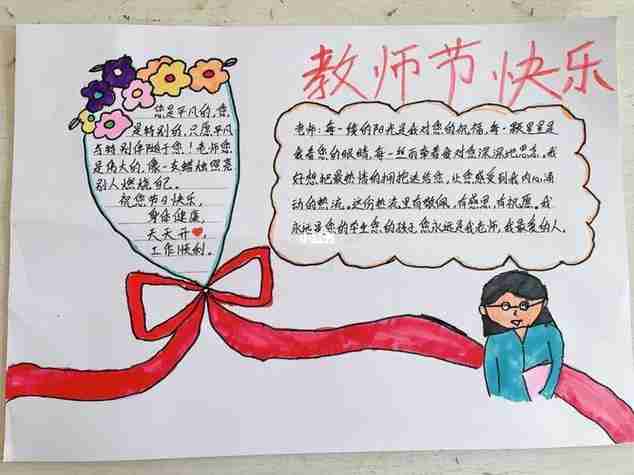 教师节快乐
您是平凡的,您
是特别的,只愿平凡
与特别伴随于您!老师您
是伟大的,像一支蜡烛照亮
别人燃烧自己。
祝您节日快乐,
身体健康,
天天开❤,
工作顺利。
老师:每一缕的阳光是我对您的祝福,每一颗星星是
我看您的眼睛,每一丝雨牵着我对您深深地思念。我
好想把最热情的拥抱送给您,让您感受到我内心涌
动的热流。这份热流里有敬佩,有感恩,有祝愿。我
永远是您的学生您的孩子您永远是我老师,我最爱的人。